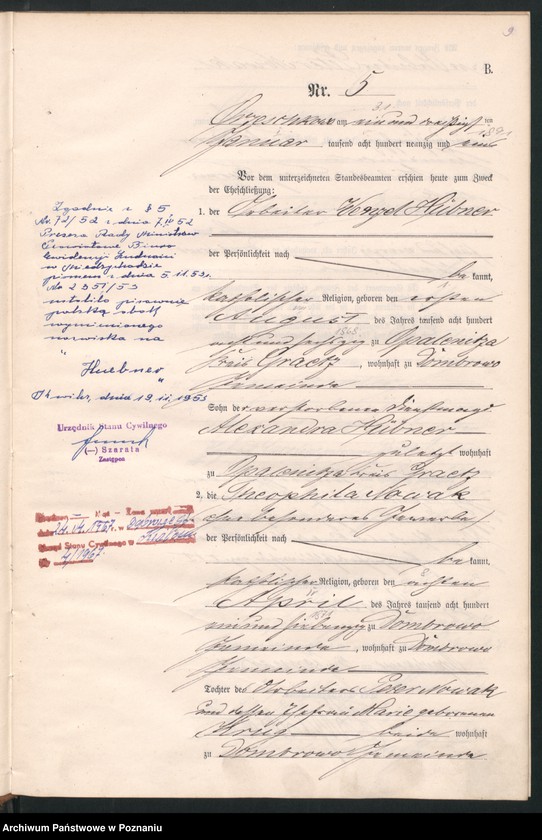 9
B.
Nr. 5
am ein und dreißigsten
31
Januar tausend acht hundert neunzig und eins
1891
Vor dem unterzeichneten Standesbeamten erschien heute zum Zweck
der Eheschließung:
1. der Arbeiter Wenzel Hübner
der Persönlichkeit nach
be kannt,
katholischer Religion, geboren den ersten
August des Jahres tausend acht hundert
1868
acht und sechzig zu Opalenitza
Kreis Graetz, wohnhaft zu Dombrowo
Gemeinde
Sohn der verstorbenen Dienstmagd
Alexandra Hübner
zuletzt wohnhaft
zu Opalenitza Kreis Graetz
2. die Theophila Nowak
ohne besonderes Gewerbe
der Persönlichkeit nach
be kannt,
katholischer Religion, geboren den achten
8
April des Jahres tausend acht hundert
1871
ein und siebenzig zu Dombrowo
Gemeinde, wohnhaft zu Dombrowo
Gemeinde
Tochter des Arbeiters Peter Nowak
und dessen Ehefrau Marie geborenen
Krug beide wohnhaft
zu Dombrowo Gemeinde
Zgodnie z § 5
Nr. 72/52 z dnia 7.IV 52
Prezesa Rady Ministrów
Powiatowe Biuro
Ewidencji Ludności
w Międzychodzie
pismem z dnia 5.11.53r.
No 2351/53
ustaliło pisownię
polską obok
wymienionego
nazwiska na
"Huebner"
dnia 19.11.1953
Urzędnik Stanu Cywilnego
(—) Szarata
Zastępca
Urząd Stanu Cywilnego w
4/1967
Archiwum Państwowe w Poznaniu